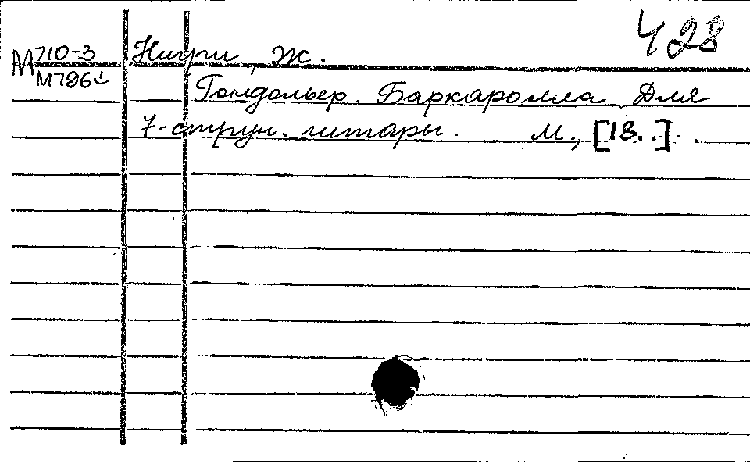 428
М 710-3
М786
Нигри, Ж.
Гондольер. Баркаролла. Для
7-струн. гитары. М., [18..].